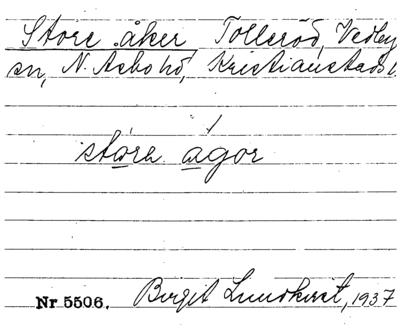 Store åker Tolleröd, Vedby
sn, N. Åsbo hd, Kristianstads l.
stóra ágor
Nr 5506. Birgit Lundkvist, 1937